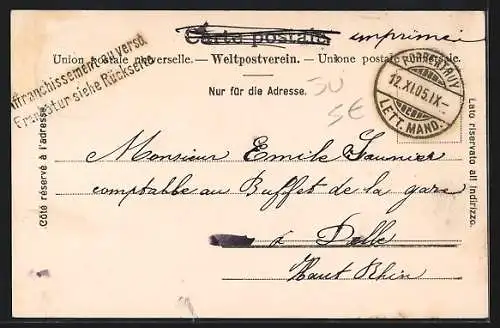 Carte postale. imprimé
Union postale universelle. — Weltpostverein. — Unione postale universale.
Nur für die Adresse.
Affranchissement au verso
Frankatur siehe Rückseite
PORRENTRUY
12.XI.05.IX–
LETT. MAND.
50
5€
Côté réservé à l'adresse.
Lato riservato all' indirizzo.
Monsieur Emile Saunier
comptable au Buffet de la gare
à Delle
Haut Rhin